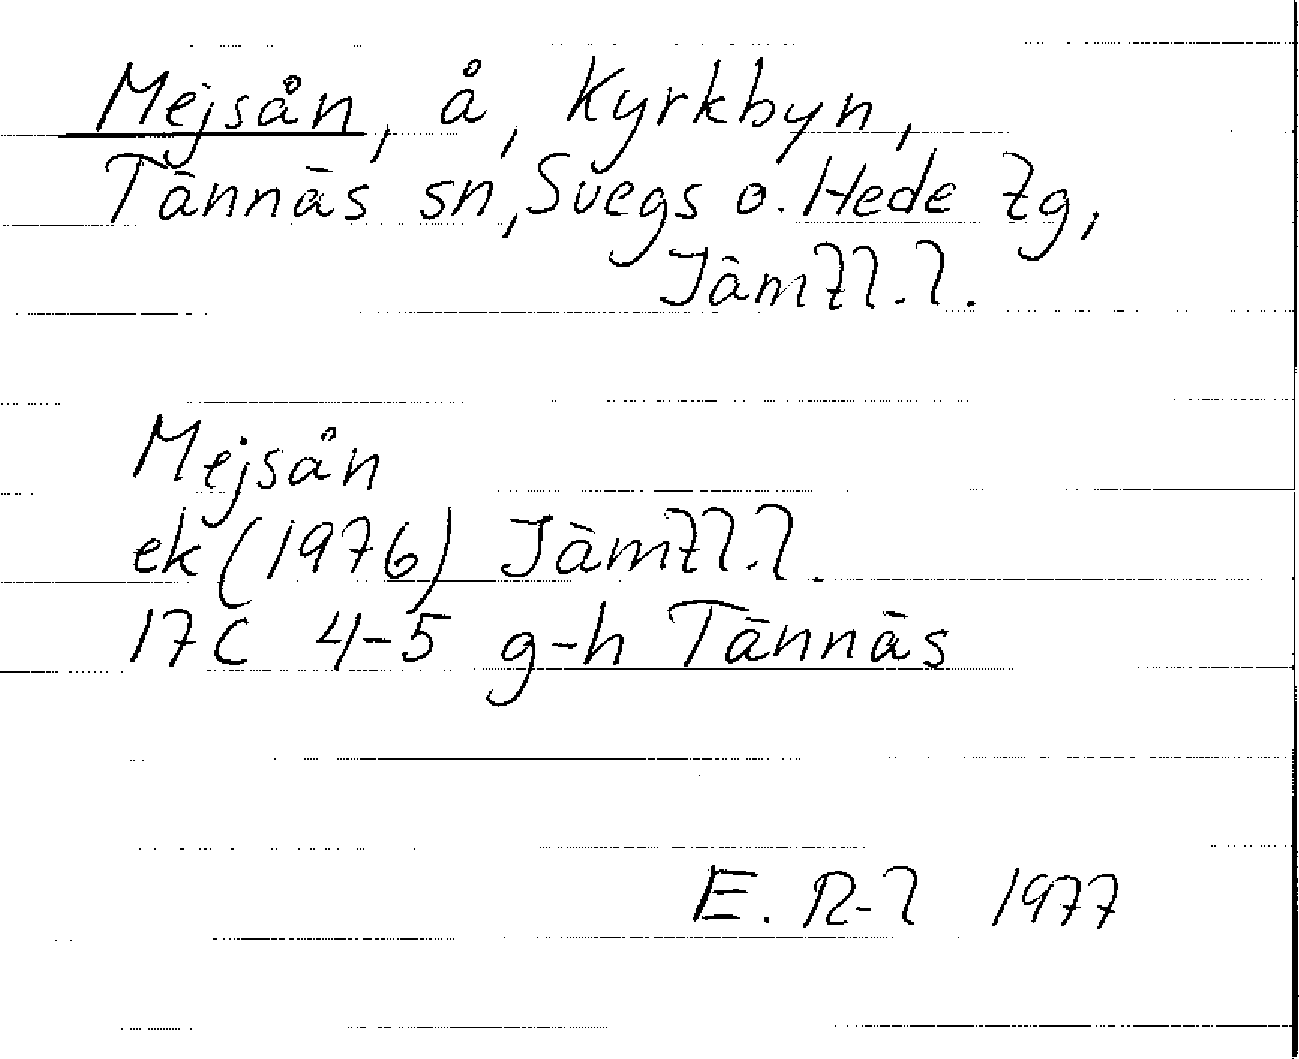 Mejsån, å, Kyrkbyn,
Tännäs sn, Svegs o. Hede tg,
Jämtl. l.
Mejsån
ek (1976) Jämtl. l.
17C 4-5 g-h Tännäs
E. R-l 1977